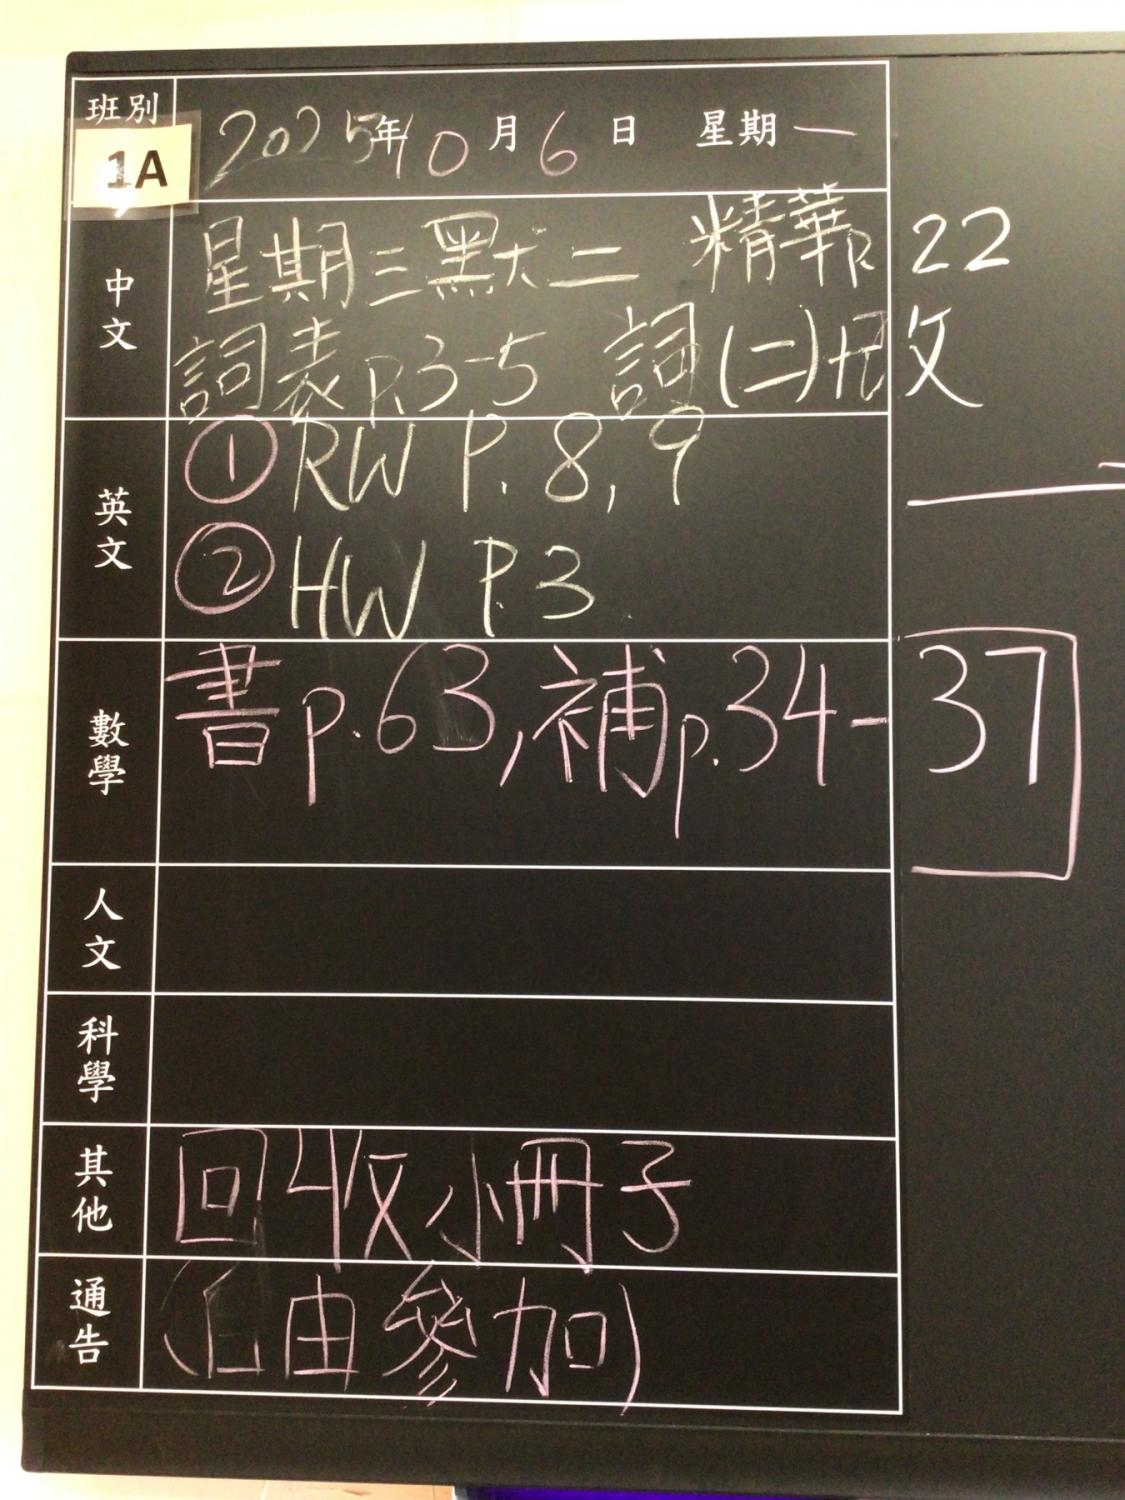 班別 2025年10月6日 星期一
1A
中文 星期三默二 精華P.22
詞表p.3-5 詞(二)改
英文 ① RW P. 8, 9
② HW P. 3
數學 書p.63,補p.34-37
人文
科學
其他 回收小冊子
通告 (自由參加)